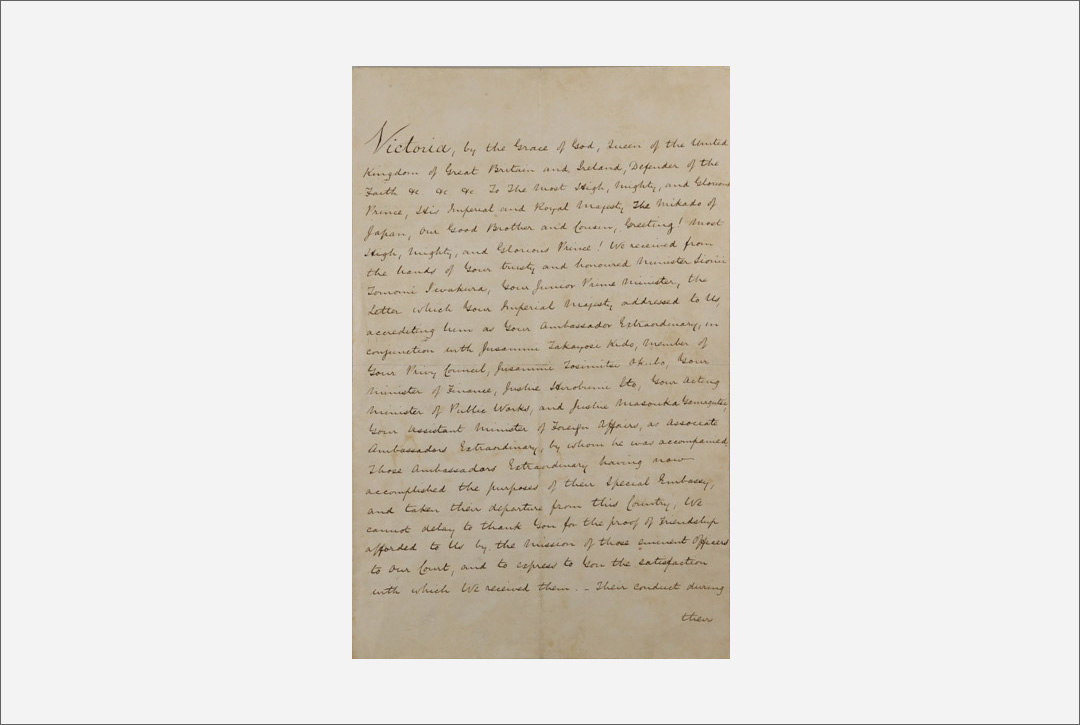 Victoria, by the Grace of God, Queen of the United
Kingdom of Great Britain and Ireland, Defender of the
Faith &c &c &c To The Most High, Mighty, and Glorious
Prince, His Imperial and Royal Majesty The Mikado of
Japan, Our Good Brother and Cousin, Greeting! Most
High, Mighty, and Glorious Prince! We received from
the hands of Your trusty and honoured Minister Sionii
Tomomi Iwakura, Your Junior Prime Minister, the
Letter which Your Imperial Majesty addressed to Us,
accrediting him as Your Ambassador Extraordinary, in
conjunction with Jusammi Takayosi Kido, Member of
Your Privy Council, Jusammi Tosimitsi Okubo, Your
Minister of Finance, Jushie Hirobumi Ito, Your Acting
Minister of Public Works, and Jushie Masouka Yamagutsi,
Your Assistant Minister of Foreign Affairs, as Associate
Ambassadors Extraordinary, by whom he was accompanied
Those Ambassadors Extraordinary having now
accomplished the purposes of their Special Embassy,
and taken their departure from this Country, We
cannot delay to thank You for the proof of Friendship
afforded to Us by the Mission of those eminent Officers
to Our Court, and to express to You the satisfaction
with which We received them. - Their conduct during
their